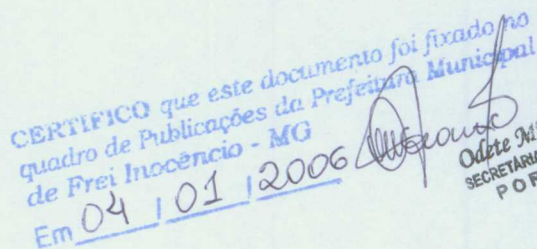 CERTIFICO que este documento foi fixado no
quadro de Publicações da Prefeitura Municipal
de Frei Inocêncio - MG
Em 04 / 01 / 2006
Odete
SECRETÁRIA
POR